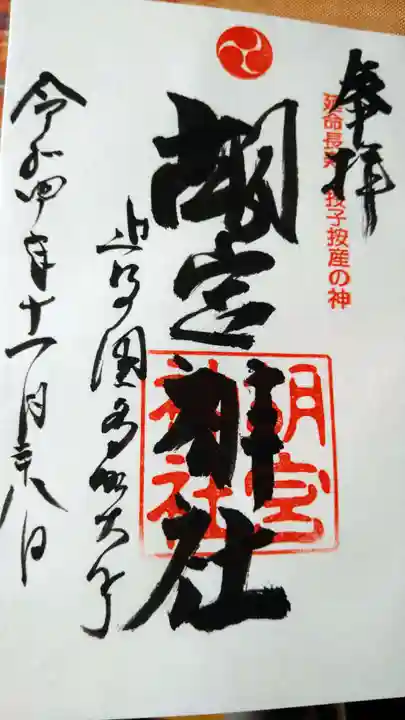 奉拝
延命長寿 授子授産の神
胡宮神社
胡宮神社
近江國多賀大
令和四年十一月二十八日